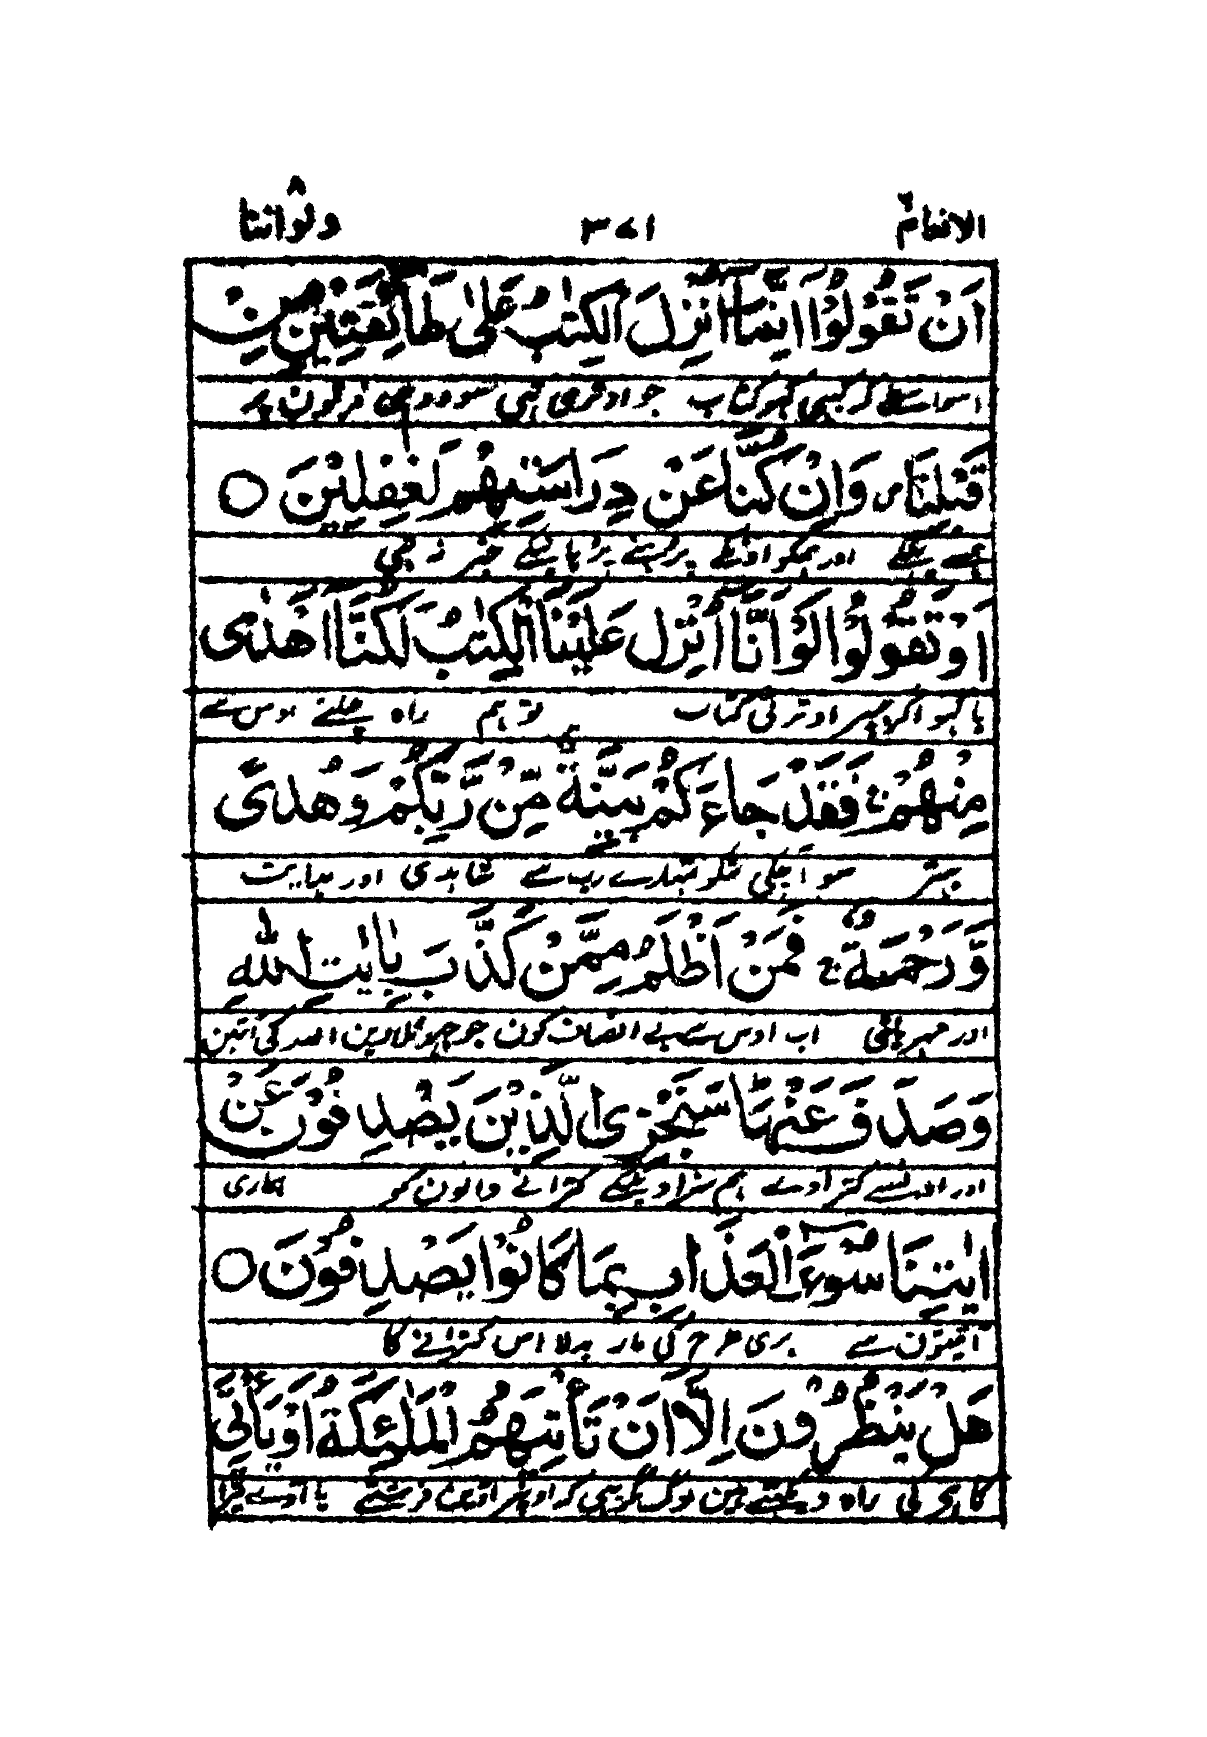 الانعام ٦ ٣٧١ ولواننا ٨
اَنْ تَقُوْلُوْٓا اِنَّمَآ اُنْزِلَ الْكِتٰبُ عَلٰى طَآئِفَتَيْنِ مِنْ
اسواسطے کہ کبھی کہو کتاب جو اوتری تھی سو دو ہی فرقون پر
قَبْلِنَا ۪ وَاِنْ كُنَّا عَنْ دِرَاسَتِهِمْ لَغٰفِلِيْنَ ○
ہمسے پہلے اور ہمکو اونکے پڑہنے پڑہانیکی خبر نہ تھی
اَوْ تَقُوْلُوْا لَوْ اَنَّآ اُنْزِلَ عَلَيْنَا الْكِتٰبُ لَكُنَّآ اَهْدٰى
یا کہو اگر ہمپر اوترتی کتاب تو ہم راہ چلتے اوس سے
مِنْهُمْ ۚ فَقَدْ جَآءَكُمْ بَيِّنَةٌ مِّنْ رَّبِّكُمْ وَهُدًى
بہتر سو آچکی تمکو تمہارے رب سے شاہدی اور ہدایت
وَّرَحْمَةٌ ۚ فَمَنْ اَظْلَمُ مِمَّنْ كَذَّبَ بِاٰيٰتِ اللّٰهِ
اور مہربانی اب اوس سے بے انصاف کون جو جہوٹلاوین اللہ کی آیتین
وَصَدَفَ عَنْهَا ۭ سَنَجْزِى الَّذِيْنَ يَصْدِفُوْنَ عَنْ
اور انسے کتراوے ہم سزا دینگے کترانے والون کو ہماری
اٰيٰتِنَا سُوْٓءَ الْعَذَابِ بِمَا كَانُوْا يَصْدِفُوْنَ ○
آیتون سے بری طرح کی مار بدلا اس کترانے کا
هَلْ يَنْظُرُوْنَ اِلَّآ اَنْ تَاْتِيَهُمُ الْمَلٰٓئِكَةُ اَوْ يَاْتِيَ
کاہے کی راہ دیکہتے ہین لوگ مگر یہی کہ اوپر آوین فرشتے یا آوے تیرا